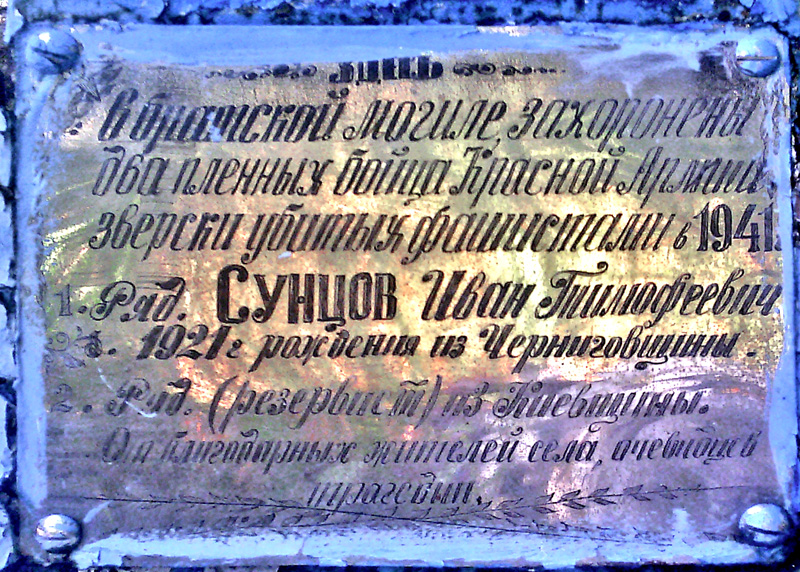 Здесь
в братской могиле захоронены
два пленных бойца Красной Армии,
зверски убитых фашистами в 1941г.
1. Ряд. СУНЦОВ Иван Тимофеевич
1921г рождения из Черниговщины.
2. Ряд. (резервист) из Киевщины.
От благодарных жителей села, очевидцев
трагедии.